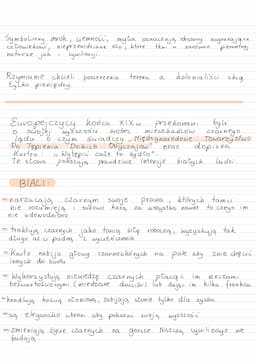 Symboliczny mrok, ciemność, mgła oznaczają obszary wymagające
człowieka, nieprzeniknione zło, które tkwi w zarówno pierwotnej
naturze jak i cywilizacji.
Rzymianie chcieli poszerzenia terenu a kolonializm chcą
tylko pieniędzy.
Europejczycy końca XIXw przekonani byli
o swojej wyższości wobec mieszkańców czarnego
lądu o czym świadczy „Międzynarodowe Towarzystwo
Do Tępienia Dzikich Obyczajów" oraz dopisek
Kurtza: „Wytępić całe to bydło".
Te słowa pokazują prawdziwe intencje białych ludzi.
BIALI:
narzucają czarnym swoje prawa, których tamci
nie rozumieją i surowo każą za wszystko nawet to czego im
nie udowodniono
traktują czarnych jako tanią siłę roboczą, wyzyskują tak
długo aż ci padną z wycieńczenia
Kurtz nabija głowy czarnoskórych na pale aby zniechęcić
innych do buntu
Wykorzystują niewiedzę czarnych płacąc im rzeczami
bezwartościowymi (miedziane druciki) lub dając im kilka franków
handlują kością słoniową, zabijają słonie tylko dla zysku
są elegancko ubrani aby pokazać swoją wyższość
zmieniają życie czarnych na gorsze. Niszczą, cywilizacji nie
budują